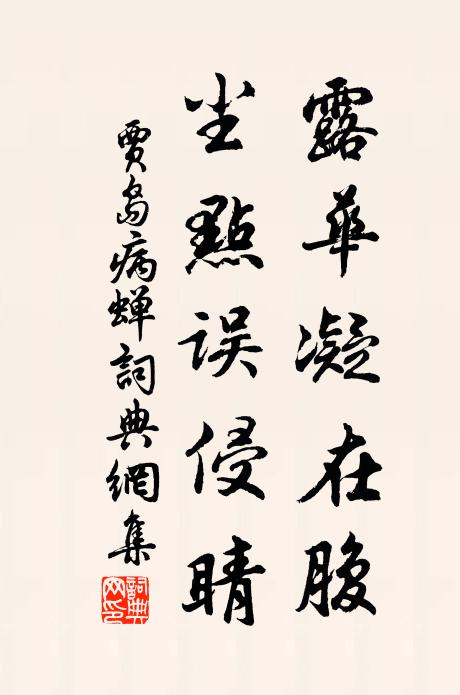 露華凝在腹
尘點误侵睛
賈島病蝉詞典網集
詞典
网印